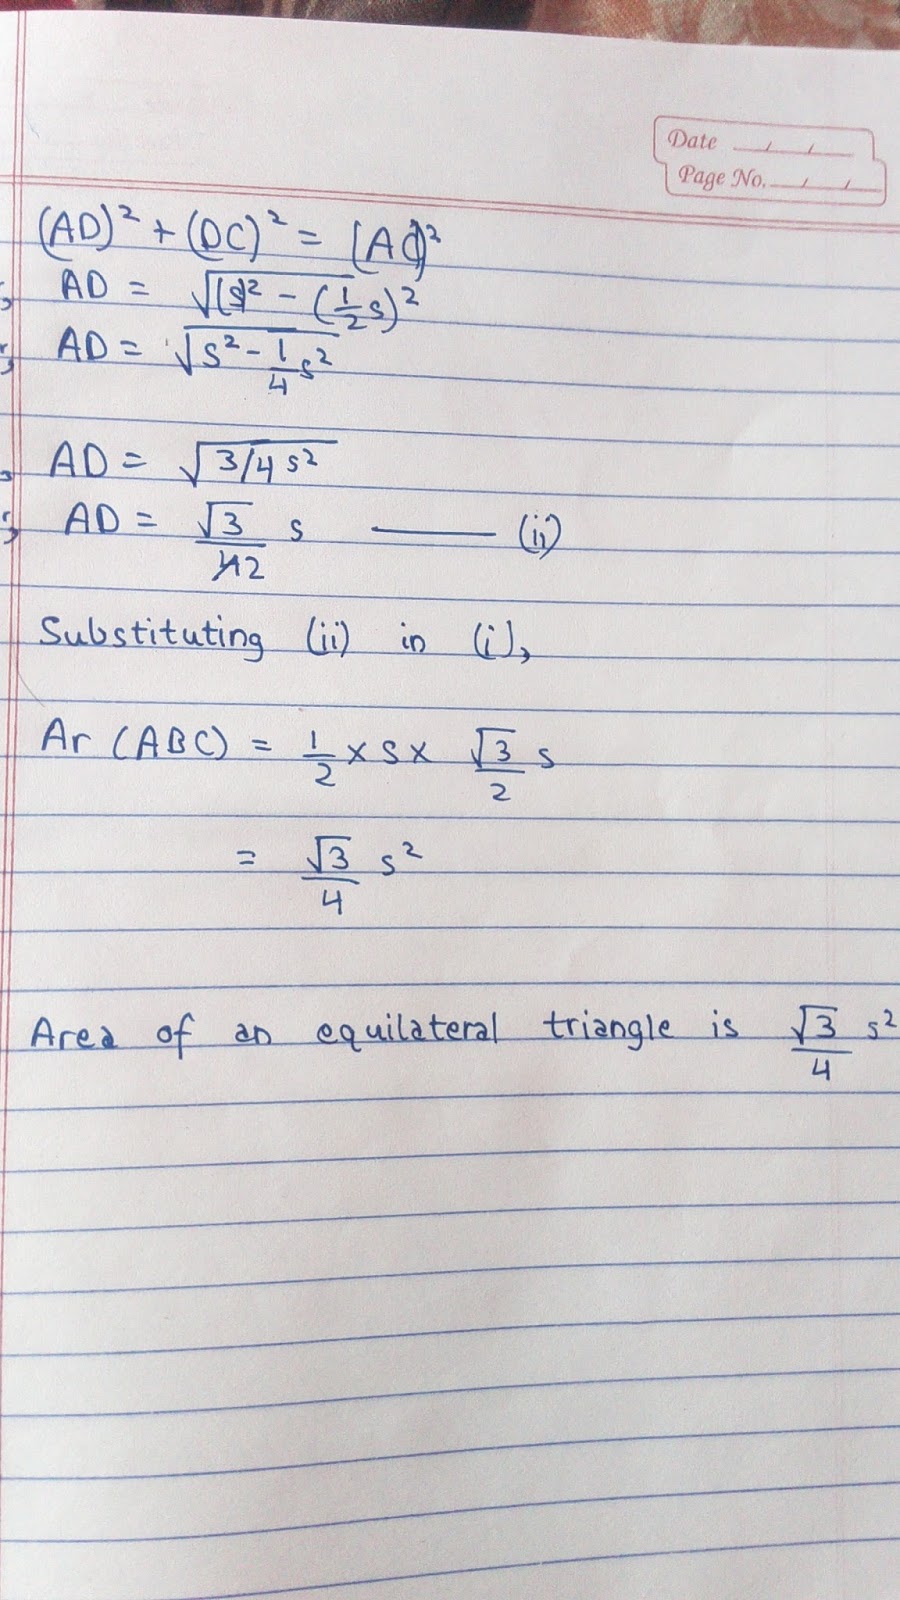 Date __/__/__
Page No. __/__/__
(AD)² + (DC)² = (AC)²
AD = √(s)² - (1/2 s)²
AD = √s² - 1/4 s²
AD = √3/4 s²
AD = √3/2 s —— (ii)
Substituting (ii) in (i),
Ar (ABC) = 1/2 × s × √3/2 s
= √3/4 s²
Area of an equilateral triangle is √3/4 s²